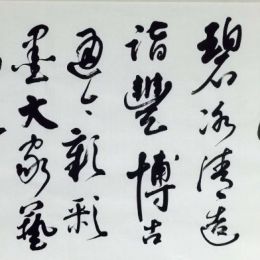 碧冰清造
詣豐博古
通今新彩
墨大家藝